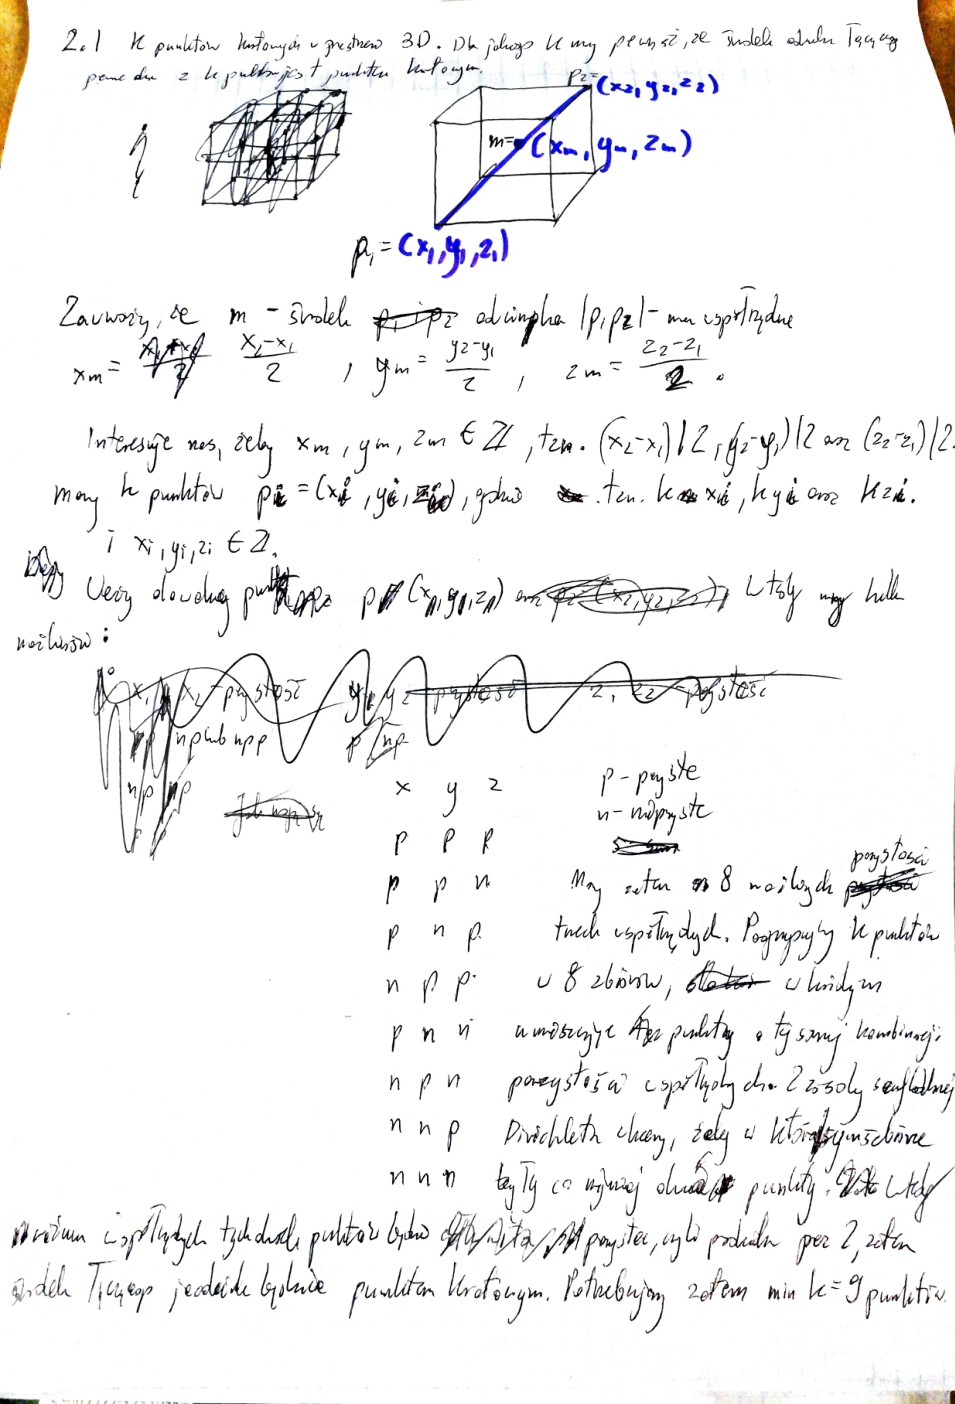 2.1 K punktów kratowych w przestrzeni 3D. Dla jakiego K mamy pewność, że środek odcinka łączący
pewne dwa z k punktów jest punktem kratowym.
p2= (x2, y2, z2)
m= (xm, ym, zm)
p1 = (x1, y1, z1)
Zauważmy, że m - środek odcinka |p1p2| - ma współrzędne
xm = x2-x1/2 , ym = y2-y1/2 , zm = z2-z1/2 .
Interesuje nas, żeby xm, ym, zm ∈ Z, tzn. (x2-x1)|2, (y2-y1)|2 oraz (z2-z1)|2.
mamy k punktów pi = (xi, yi, zi), gdzie tzn. k xi, k yi oraz k zi.
i xi, yi, zi ∈ Z.
Weźmy dowolny punkt p (x1, y1, z1) wtedy mamy kilka
możliwości :
x y z
p - parzyste
n - nieparzyste
p p p
p p n
Mamy zatem 8 możliwych parzystości
p n p
trzech współrzędnych. Pogrupujmy K punktów
n p p
w 8 zbiorów, w każdym
p n n
umieszczając punkty o tej samej kombinacji
n p n
parzystości współrzędnych. Z zasady szufladkowej
n n p
Dirichleta chcemy, żeby w którymś zbiorze
n n n
były co najmniej dwa punkty. wtedy
różnica współrzędnych tych dwóch punktów będzie parzysta, czyli podzielna przez 2, zatem
środek łączącego je odcinka będzie punktem kratowym. Potrzebujemy zatem min k=9 punktów.